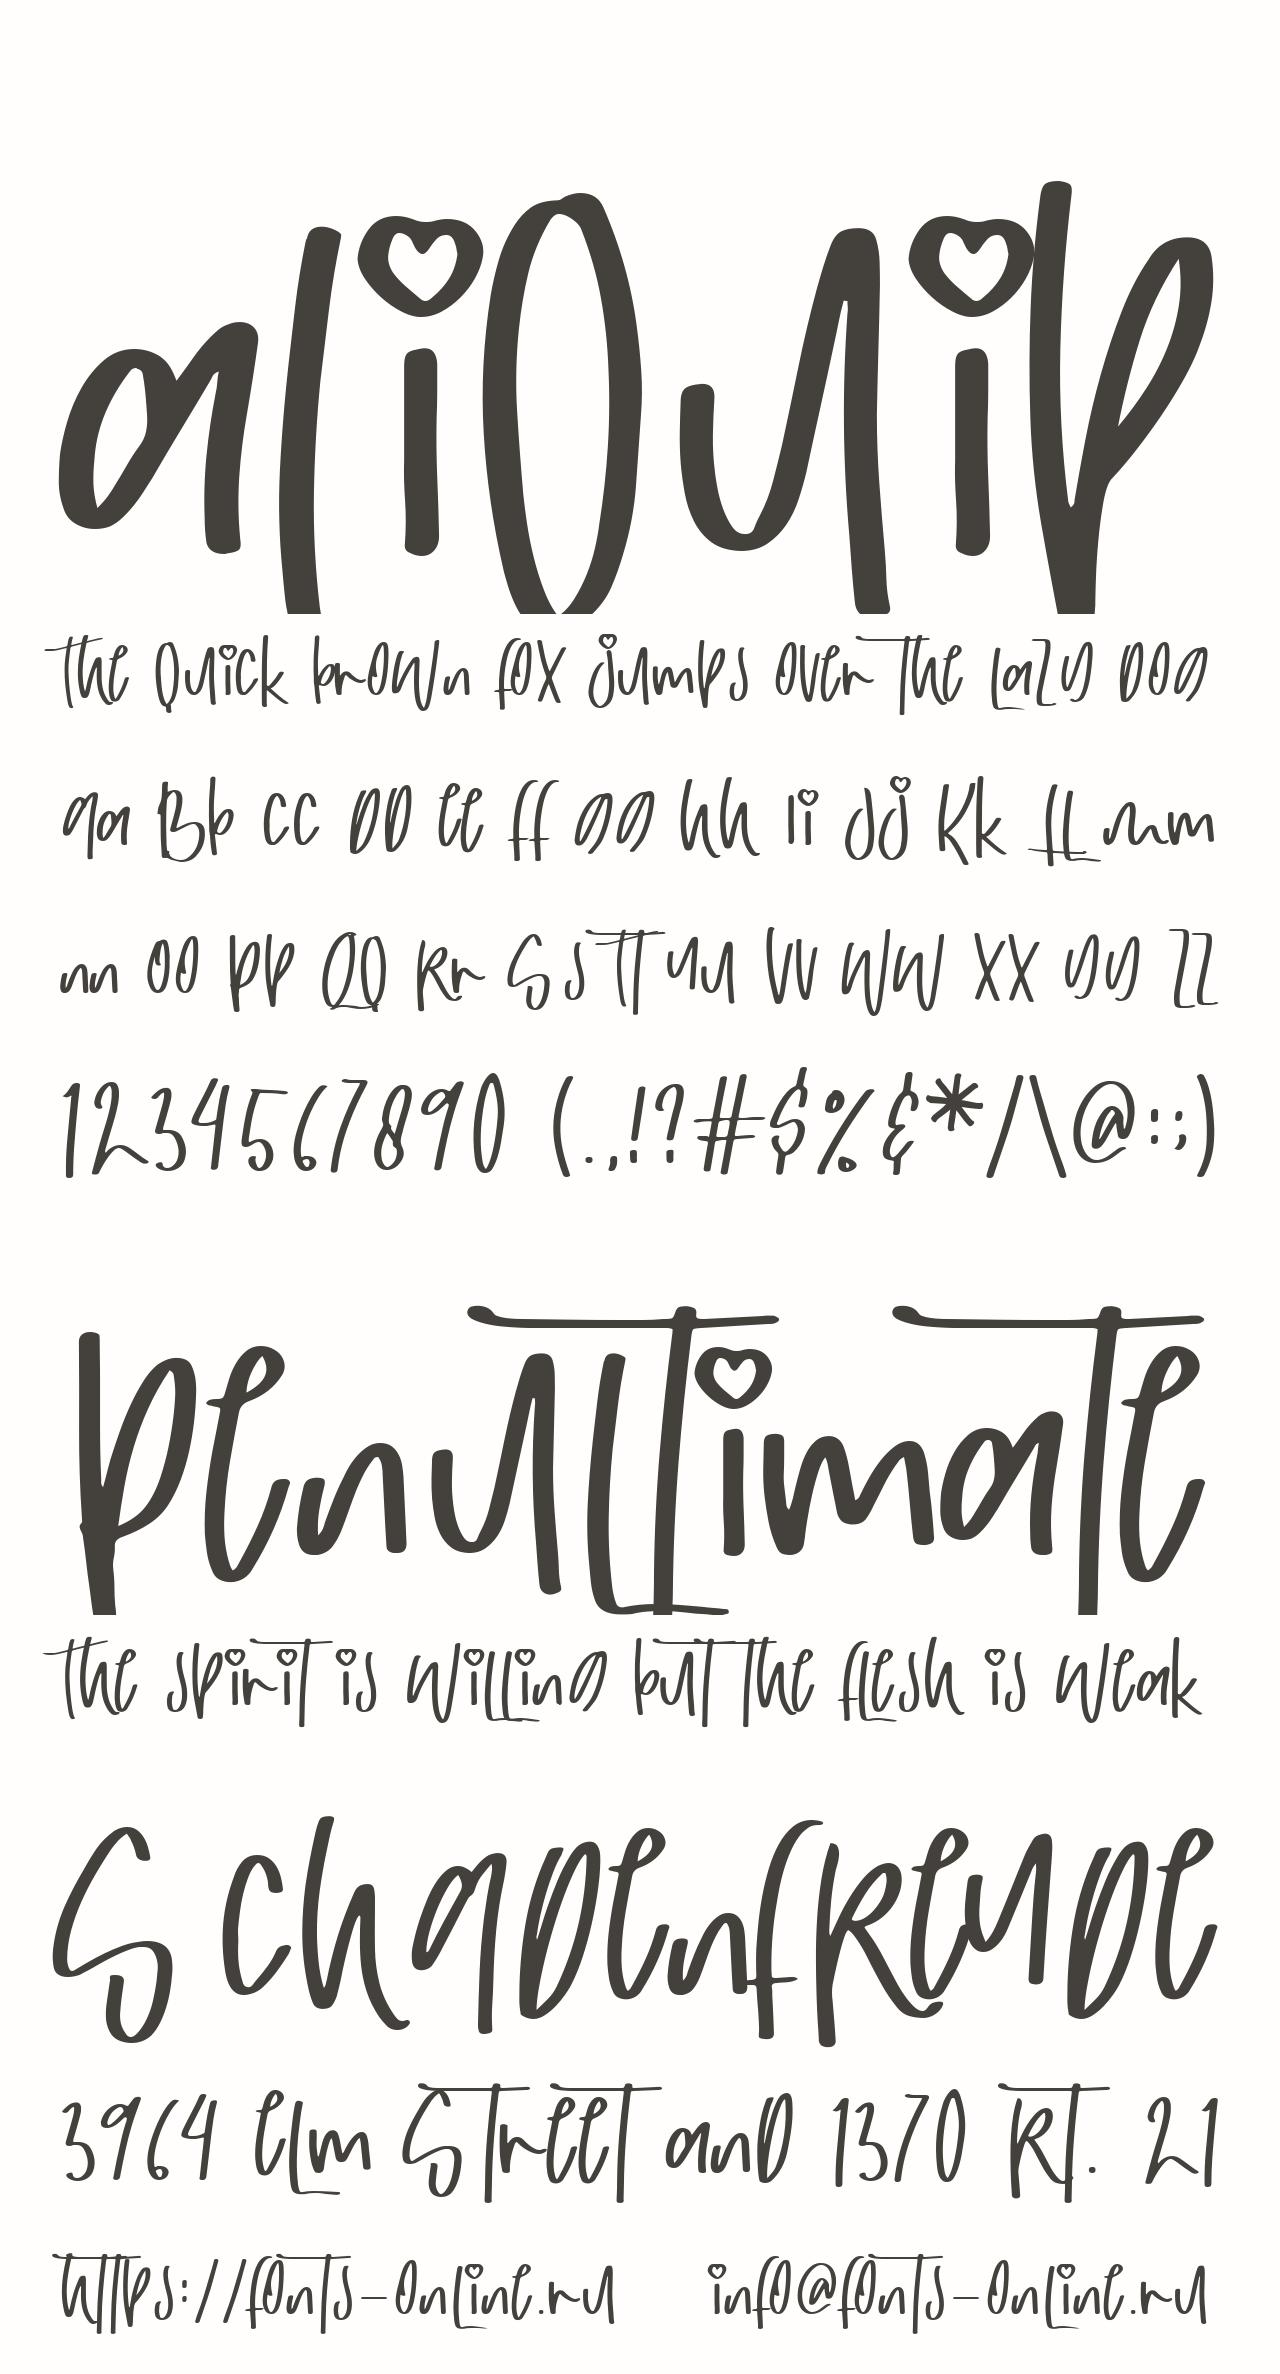 aliquip
The quick brown fox jumps over the lazy dog
Aa Bb Cc Dd Ee Ff Gg Hh Ii Jj Kk Ll Mm
Nn Oo Pp Qq Rr Ss Tt Uu Vv Ww Xx Yy Zz
1234567890 (.,!?#$%&*/\@:;)
penultimate
The spirit is willing but the flesh is weak
SchAdenfReUde
3964 Elm Street and 1370 Rt. 21
https://fonts-online.ru info@fonts-online.ru